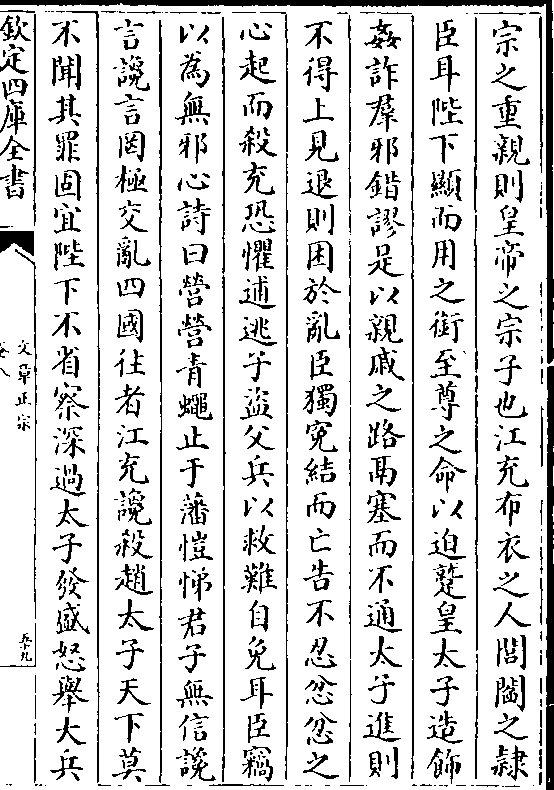 宗之重親則皇帝之宗子也江充布衣之人閭閻之隸
臣耳陛下顯而用之銜至尊之命以迫蹵皇太子造飾
姦詐羣邪錯謬是以親戚之路鬲塞而不通太子進則
不得上見退則困於亂臣獨寃結而亡告不忍忿忿之
心起而殺充恐懼逋逃子盗父兵以救難自免耳臣竊
以為無邪心詩曰營營青蠅止于藩愷悌君子無信讒
言讒言罔極交亂四國往者江充讒殺趙太子天下莫
不聞其罪固宜陛下不省察深過太子發盛怒舉大兵
欽定四庫全書
文章正宗
卷八
五十九